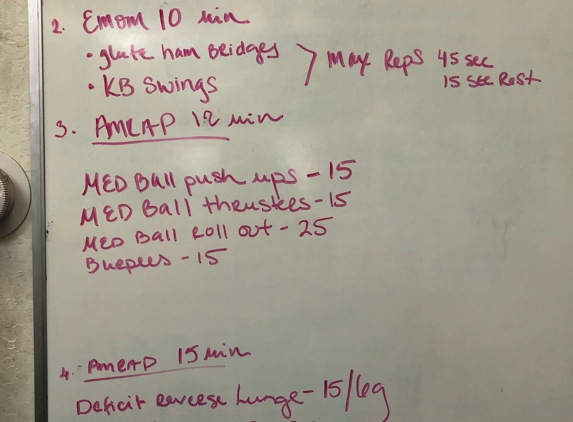 2. EMOM 10 min
• glute ham Bridges
• KB Swings
> Max Reps 45 sec
15 sec Rest
3. AMRAP 12 min
MED Ball push ups - 15
MED Ball thrusters - 15
MED Ball Roll out - 25
Burpees - 15
4. AMRAP 15 min
Deficit reverse Lunge - 15/leg